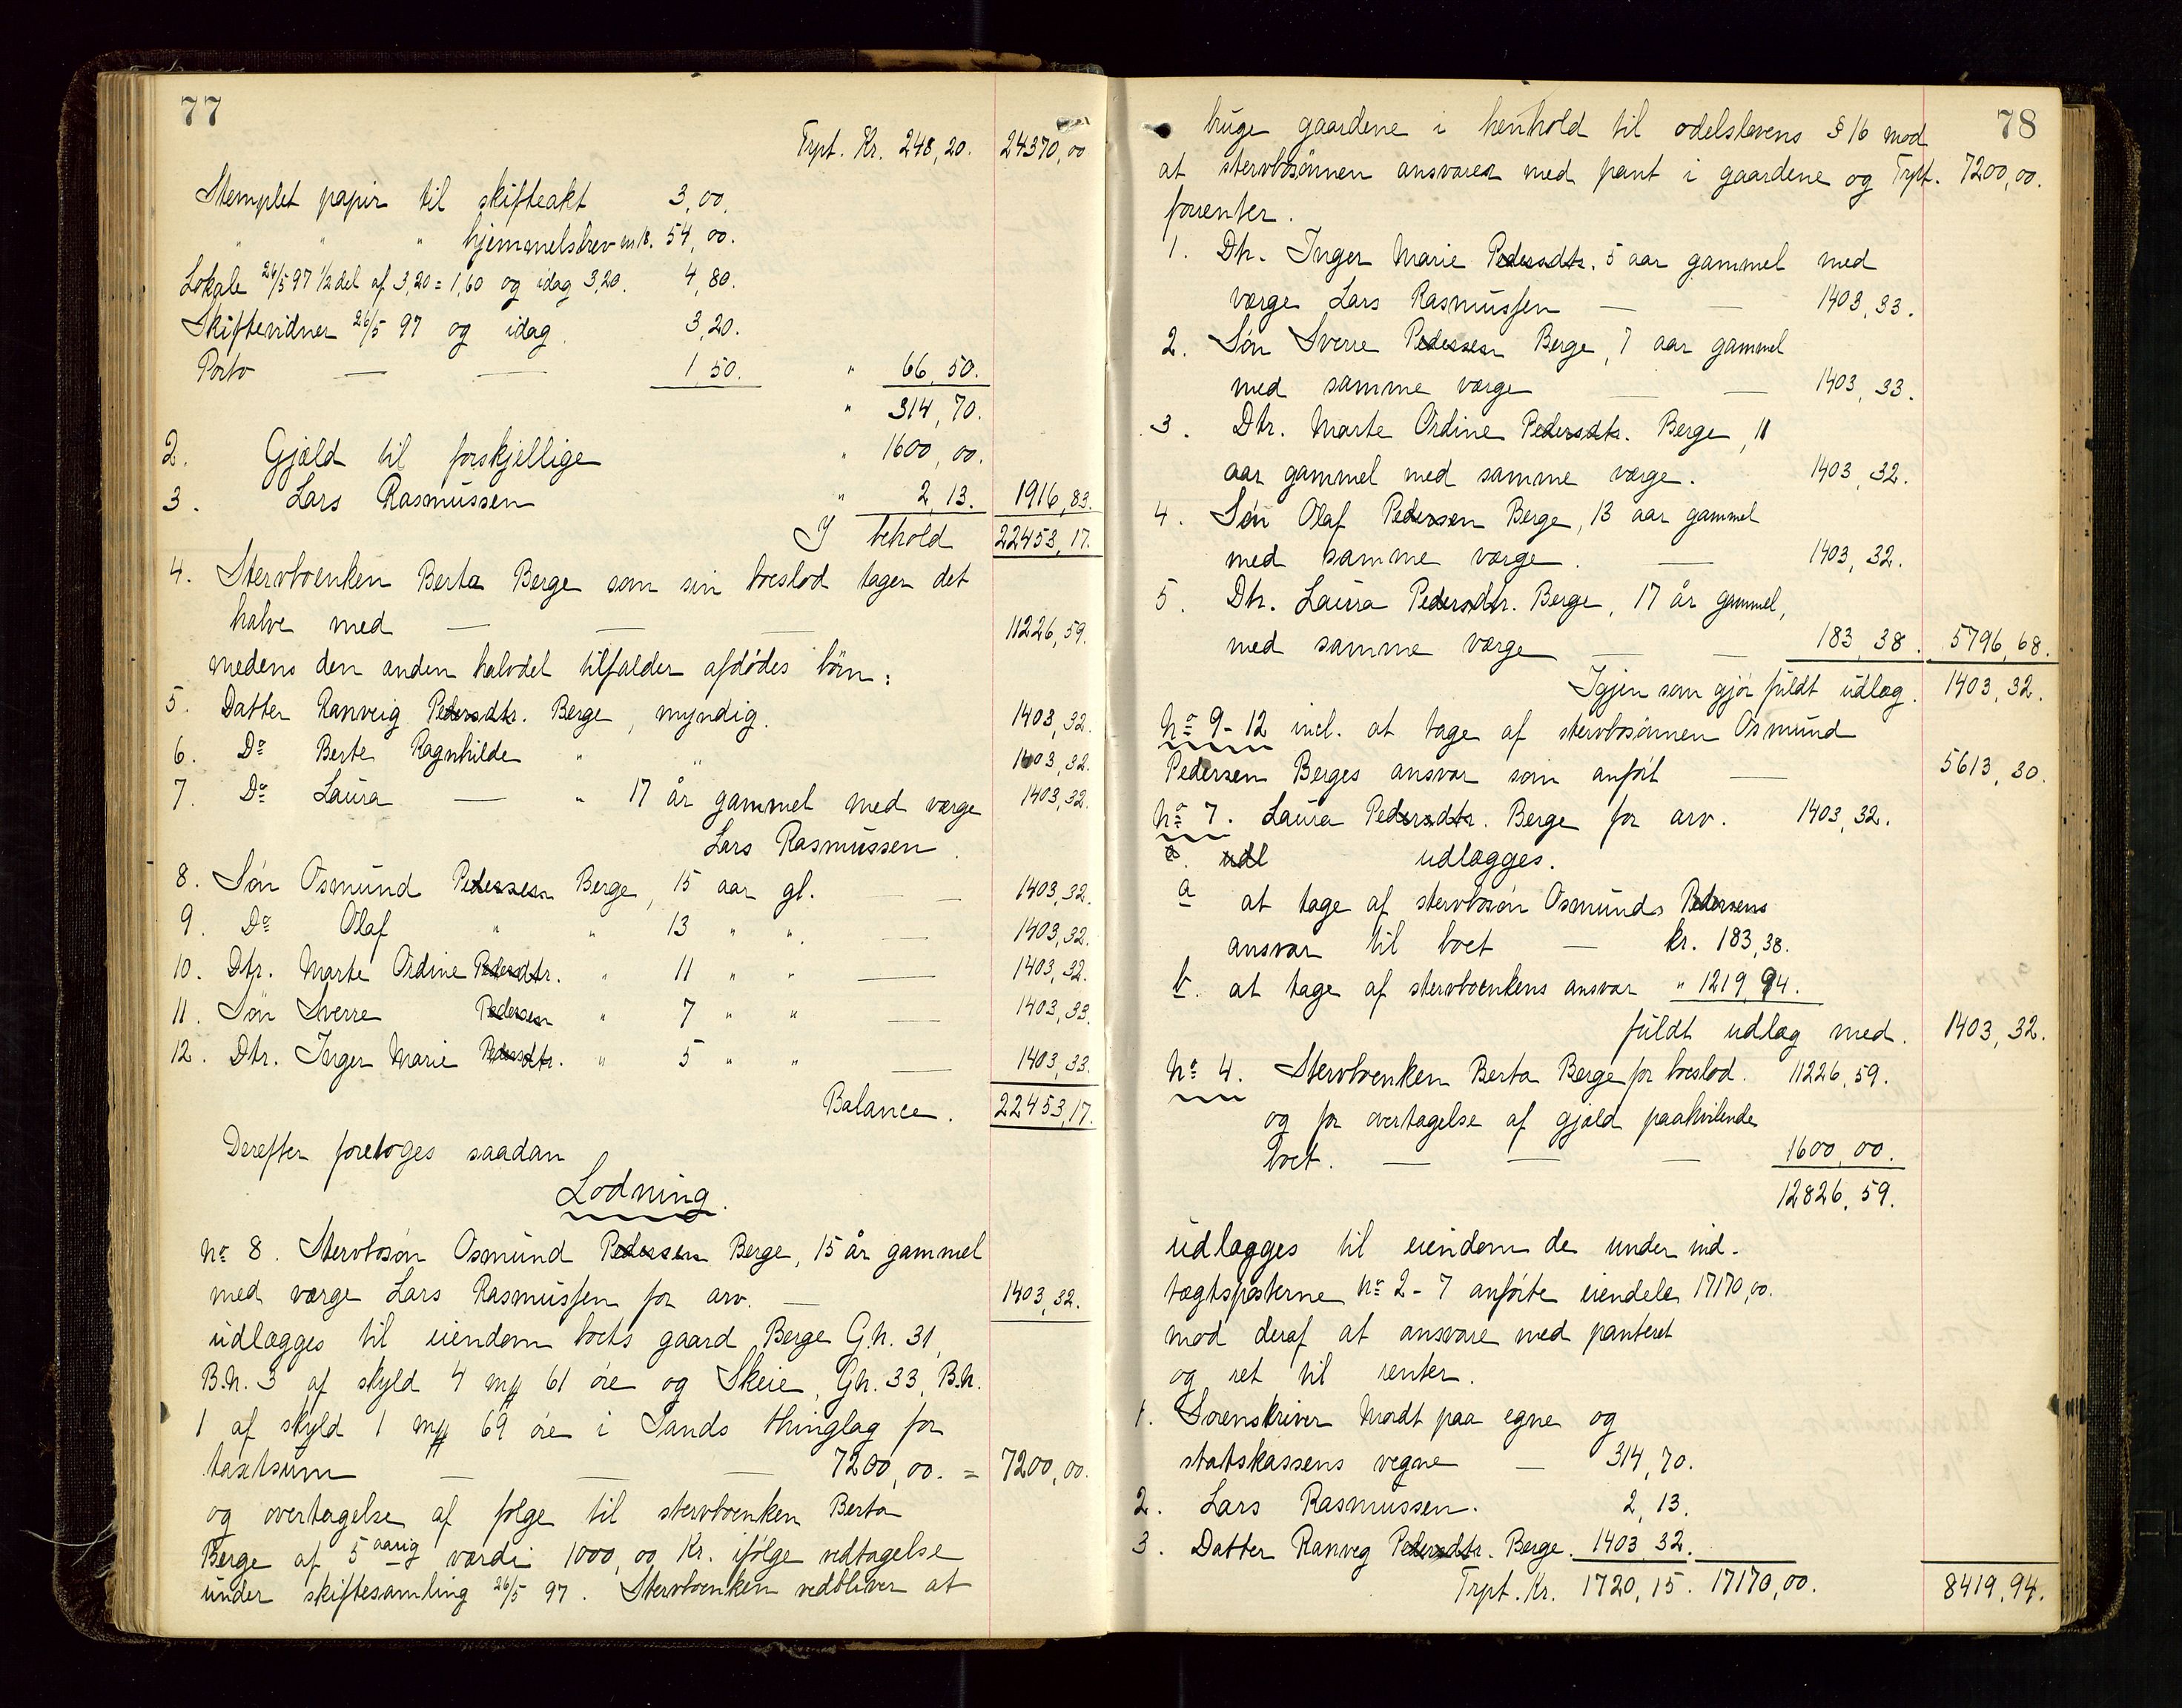 77
Trpt. Kr. 248,20. 24370,00
Stemplet papir til skifteakt 3,00.
" " " hjemmelsbrev m.v. 54,00.
Lokale 26/5 97 1/2 del af 3,20 = 1,60 og idag 3,20. 4,80.
Skiftevidner 26/5 97 og idag. 3,20.
Porto — — 1,50. " 66,50.
" 314,70.
2. Gjæld til forskjellige " 1600,00.
3. Lars Rasmussen " 2,13. 1916,83.
I behold 22453,17.
4. Stervboenken Berta Berge som sin boeslod tager det
halve med — — — 11226,59.
medens den anden halvdel tilfalder afdødes børn:
5. Datter Ranveig Pedersdtr. Berge, myndig. 1403,32.
6. Do Berte Ragnhilde " " 1403,32.
7. Do Laura — " 17 år gammel med værge 1403,32.
Lars Rasmussen.
8. Søn Osmund Pedersen Berge, 15 aar gl. — — 1403,32.
9. Do Olaf " " 13 " ". — 1403,32.
10. Dtr. Marte Ordine Pedersdtr. " 11 " " — 1403,32.
11. Søn Sverre Pedersen " 7 " " — 1403,33.
12. Dtr. Inger Marie Pedersdtr. " 5 " " — 1403,33.
Balance. 22453,17.
Derefter foretoges saadan
Lodning.
No 8. Stervbosøn Osmund Pedersen Berge, 15 år gammel
med værge Lars Rasmussen for arv. — 1403,32.
udlægges til eiendom boets gaard Berge G.n. 31,
B.n. 3 af skyld 4 mρ 61 øre og Skeie, Gn. 33, B.n.
1 af skyld 1 mρ 69 øre i Sands thinglag for
taxtsum — — — 7200,00. = 7200,00.
og overtagelse af følge til stervboenken Berta
Berge af 5 aarig værdi 1000,00 Kr. ifølge vedtagelse
under skiftesamling 26/5 97. Stervboenken vedbliver at
78
bruge gaardene i henhold til odelslovens § 16 mod
at stervbosønnen ansvarer med pant i gaardene og Trpt. 7200,00.
forrenter.
1. Dtr. Inger Marie Pedersdtr. 5 aar gammel med
værge Lars Rasmussen — — 1403,33.
2. Søn Sverre Pedersen Berge, 7 aar gammel
med samme værge — — 1403,33.
3. Dtr. Marte Ordine Pedersdtr. Berge, 11
aar gammel med samme værge. 1403,32.
4. Søn Olaf Pedersen Berge, 13 aar gammel
med samme værge. — 1403,32.
5. Dtr. Laura Pedersdtr. Berge, 17 år gammel,
med samme værge — — 183,38. 5796,68.
Igjen som gjør fuldt udlæg. 1403,32.
No 9-12 incl. at tage af stervbosønnen Osmund
Pedersen Berges ansvar som anført — 5613,30.
No 7. Laura Pedersdtr. Berge for arv. 1403,32.
a. udl udlægges.
a at tage af stervbosøn Osmunds Pedersens
ansvar til boet — kr. 183,38.
b. at tage af stervboenkens ansvar " 1219,94.
fuldt udlæg med. 1403,32.
No 4. Stervboenken Berta Berge for boeslod. 11226,59.
og for overtagelse af gjæld paahvilende
boet. — — — 1600,00.
12826,59.
udlægges til eiendom de under ind-
tægtsposterne No 2-7 anførte eiendele 17170,00.
mod deraf at ansvare med panteret
og ret til renter.
1. Sorenskriver Mordt paa egne og
statskassens vegne — 314,70.
2. Lars Rasmussen. 2,13.
3. Datter Ranveg Pedersdtr. Berge. 1403,32.
Trpt. Kr. 1720,15. 17170,00. 8419,94.